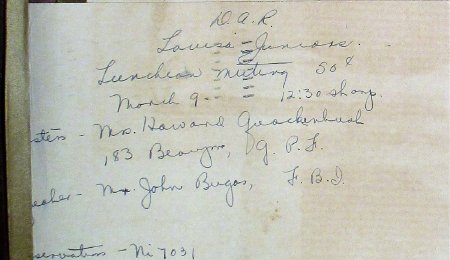 D.A.R.
Louisa Juniors.
Luncheon meeting 50¢
March 9 -- 12:30 sharp.
stess - Mrs. Howard Quackenbush
183 G.P.F.
eaker - Mr. John Bugas, F.B.I.
servations - Ni 7031